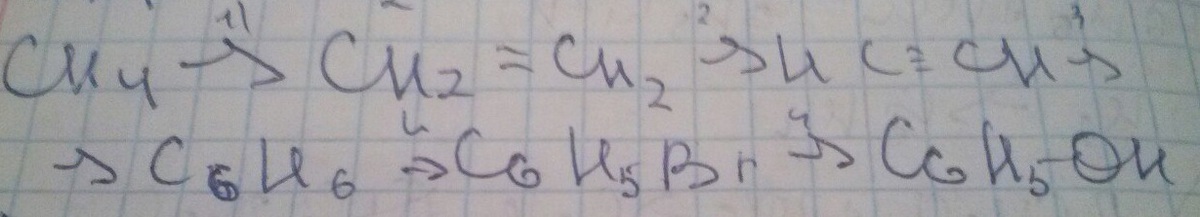 CH4 →1) CH2 = CH2 →2 HC ≡ CH →3
→ C6H6 →4 C6H5Br →4 C6H5-OH